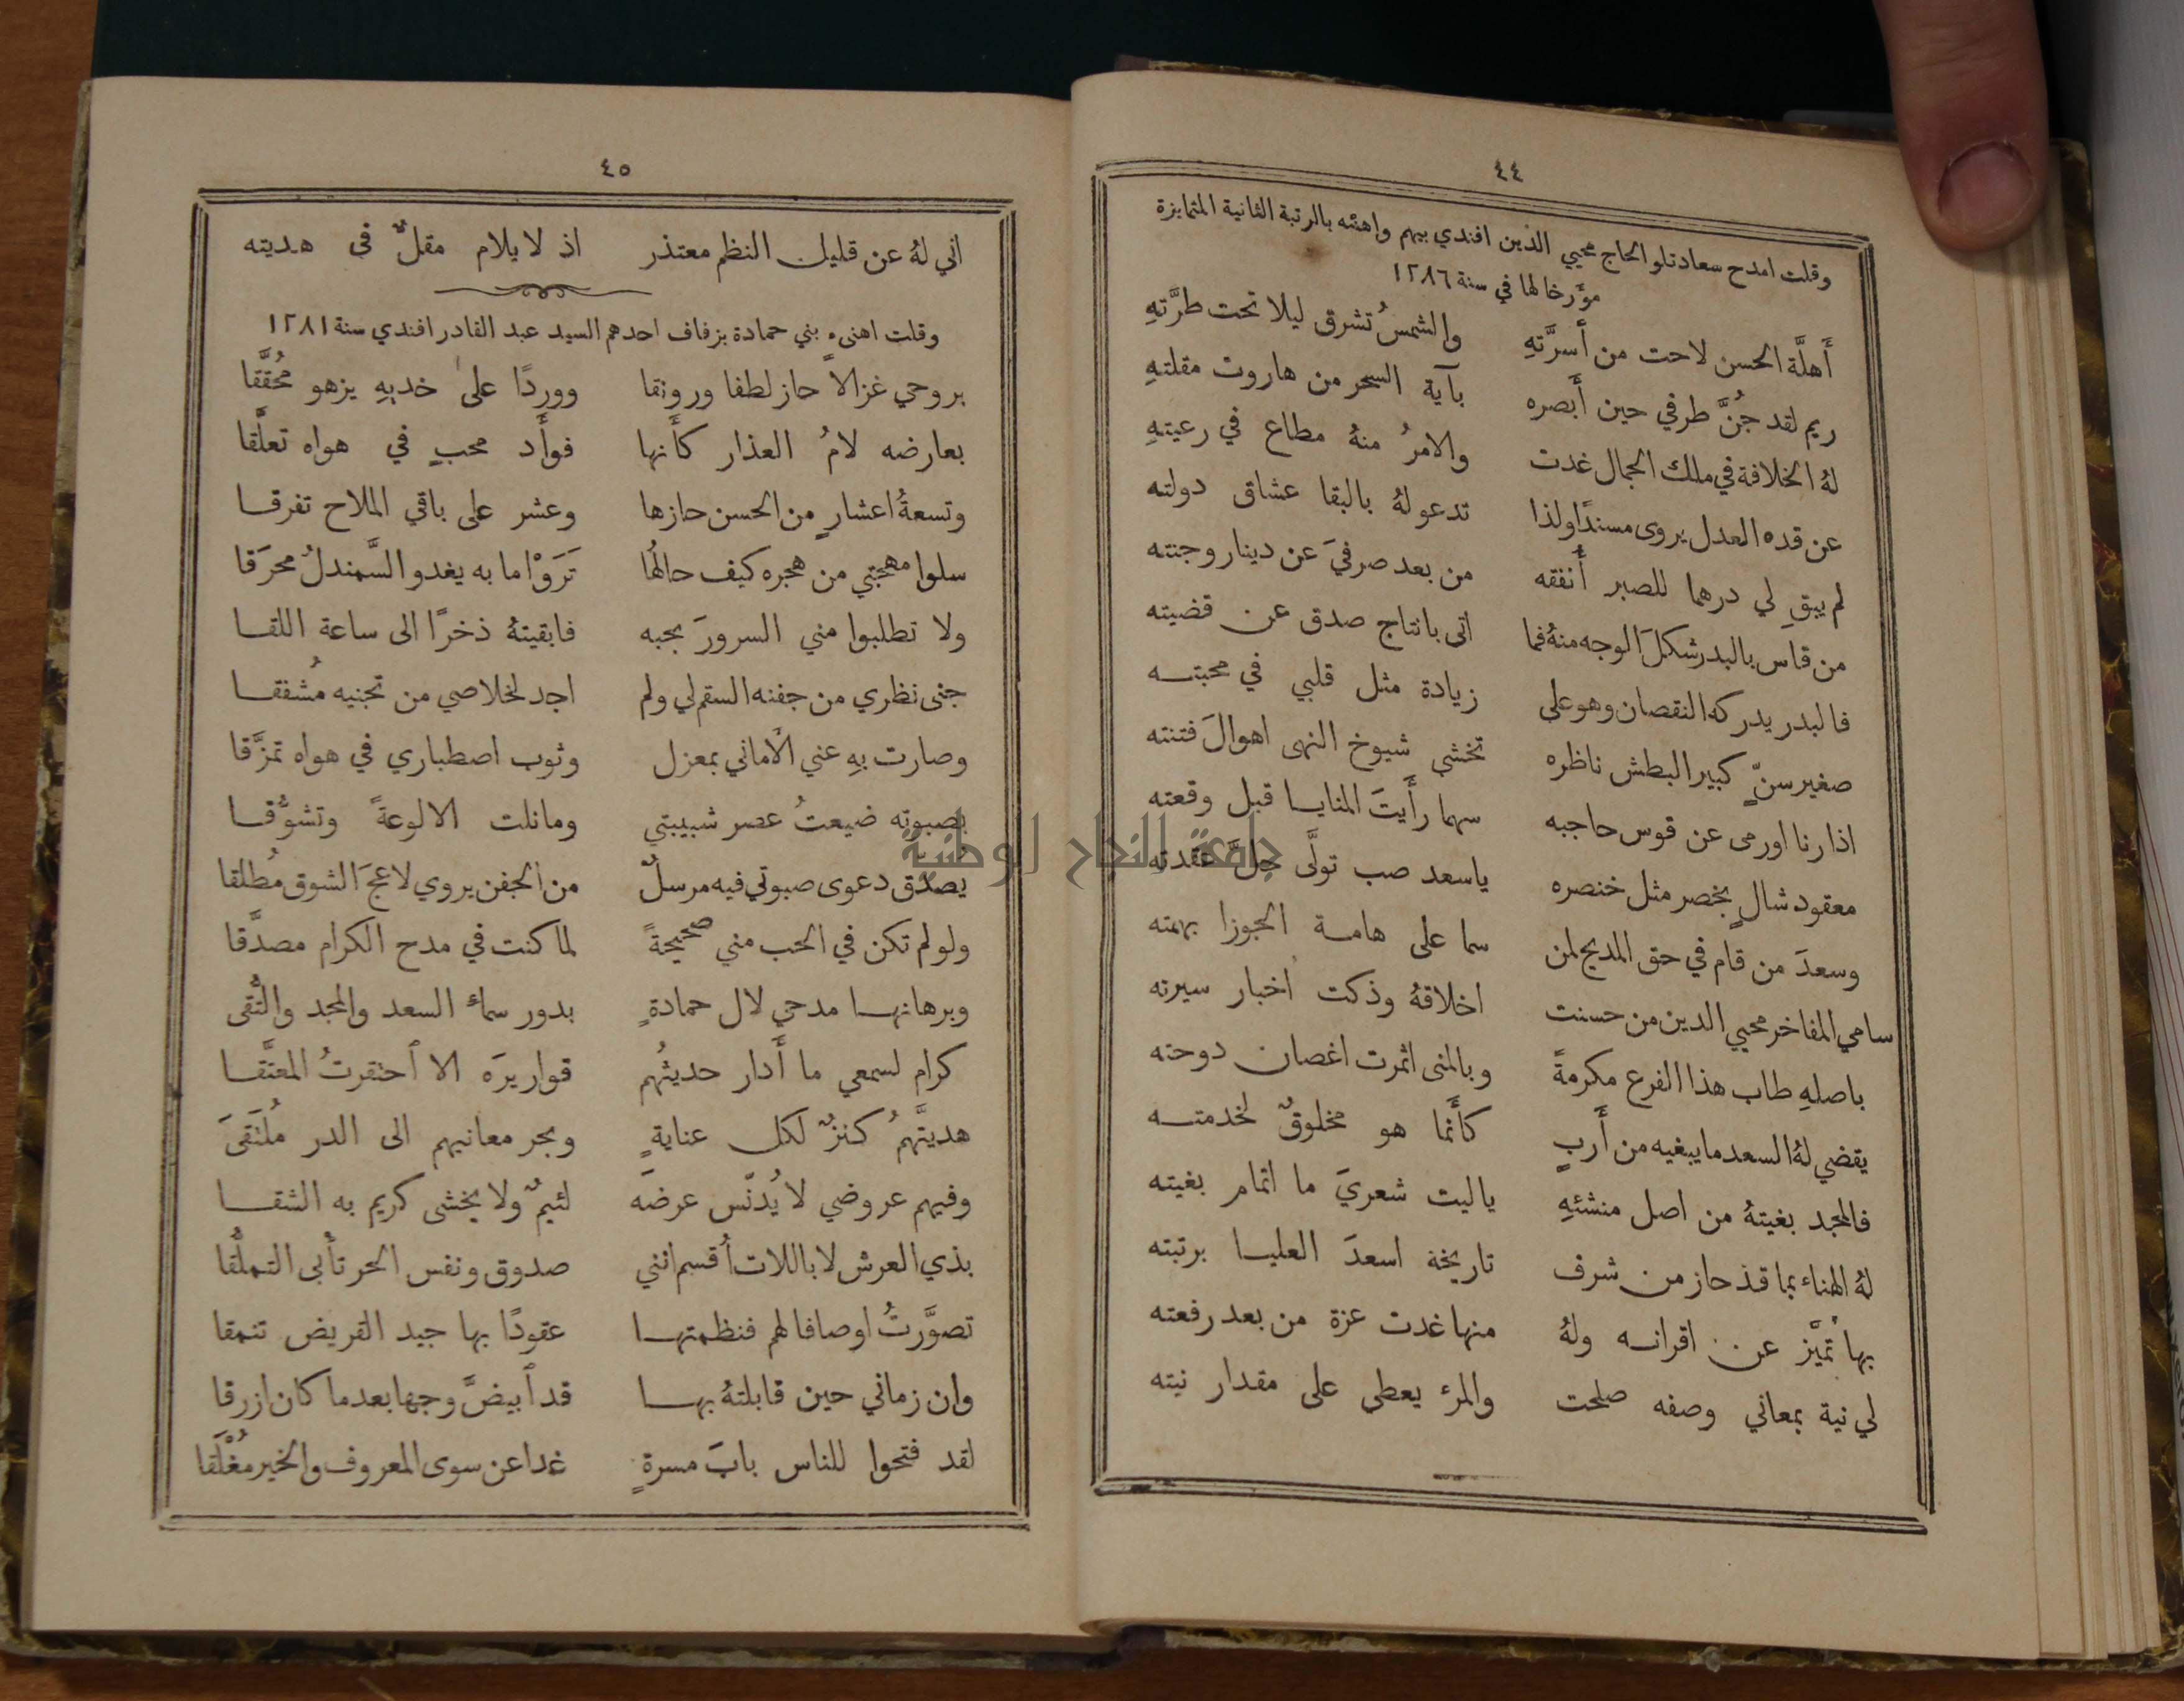 ٤٤
وقلت امدح سعادتلو الحاج محيي الدين افندي بيهم واهنئه بالرتبة الثانية المتمايزة
مؤرخا لها في سنة ١٢٨٦
أَهلَّة الحسن لاحت من أَسرَّتهِ والشمسُ تشرق ليلا تحت طرَّتهِ
ريم لقد جُنَّ طرفي حين أَبصره بآية السحر من هاروت مقلتهِ
لهُ الخلافة في ملك الجمال غدت والامرُ منهُ مطاع في رعيتهِ
عن قده العدل يروى مسندًا ولذا تدعو لهُ بالبقا عشاق دولته
لم يبقِ لي درهما للصبر أَنفقه من بعد صرفيَ عن دينار وجنته
من قاس بالبدر شكلَ الوجه منهُ فما اتى بانتاج صدق عن قضيته
فالبدر يدركه النقصان وهو على زيادة مثل قلبي في محبته
صغير سنٍّ كبير البطش ناظره تخشى شيوخ النهى اهوالَ فتنته
اذا رنا اورمى عن قوس حاجبه سهما رأَيتَ المنايا قبل وقعته
معقود شالٍ بخصر مثل خنصره ياسعد صب تولَّى حلَّ عقدته
وسعدَ من قام في حق المديح لمن سما على هامة الجوزا بهمته
سامي المفاخر محيي الدين من حسنت اخلاقهُ وذكت اخبار سيرته
باصلهِ طاب هذا الفرع مكرمةً وبالمنى اثمرت اغصان دوحته
يقضي لهُ السعد ما يبغيه من أَربٍ كأَنما هو مخلوقٌ لخدمته
فالمجد بغيتهُ من اصل منشئهِ ياليت شعريَ ما اتمام بغيته
لهُ الهناء بما قد حاز من شرف تاريخهُ اسعدَ العليا برتبته
بها تميَّز عن اقرانه ولهُ منها غدت عزة من بعد رفعته
لي نية بمعاني وصفه صلحت والمرء يعطي على مقدار نيته
٤٥
اني لهُ عن قليل النظم معتذر اذ لا يلام مقلٌّ في هديته
وقلت اهنىء بني حمادة بزفاف احدهم السيد عبد القادر افندي سنة ١٢٨١
بروحي غزالا حاز لطفا ورونقا ووردًا على خديهِ يزهو محُقَّقا
بعارضه لامُ العذار كأَنها فوأَد محبٍ في هواه تعلَّقا
وتسعةُ اعشارٍ من الحسن حازها وعشر على باقي الملاح تفرقا
سلوا مهجتي من هجره كيف حالُها تَرَوْا ما به يغدو السَّمندلُ محرَقا
ولا تطلبوا مني السرورَ بحبه فابقيتهُ ذخرًا الى ساعة اللقا
جنى نظري من جفنه السقم لي ولم اجد لخلاصي من تجنيه مُشفقا
وصارت بهِ عني الأماني بمعزل وثوب اصطباري في هواه تمزَّقا
بصبوته ضيعتُ عصر شبيبتي وما نلت الا لوعةً وتشوُّقا
يصدّق دعوى صبوتي فيه مرسلٌ من الجفن يروي لاعجَ الشوق مُطلقا
ولو لم تكن في الحب مني صحيحةً لما كنت في مدح الكرام مصدَّقا
وبرهانها مدحي لال حمادةٍ بدور سماء السعد والمجد والتُّقى
كرام لسمعي ما أَدار حديثُهم قواريرَه الا أحتقرتُ المعتَّقا
هديتَّهمُ كنزٌ لكل عنايةٍ وبحر معانيهم الى الدر مُلتَقىَ
وفيهم عروضي لا يُدنّس عرضَه لئيمٌ ولا يخشى كريم به الشقا
بذي العرش لا باللات أُقسم انني صدوق ونفس الحر تأبى التملُّقا
تصوَّرتُ اوصافا لهم فنظمتها عقودًا بها جيد القريض تنمقا
وان زماني حين قابلتهُ بها قد أبيضَّ وجها بعد ما كان ازرقا
لقد فتحوا للناس بابَ مسرةٍ غدا عن سوى المعروف والخير مُغْلَقا
جامعة النجاح الوطنية